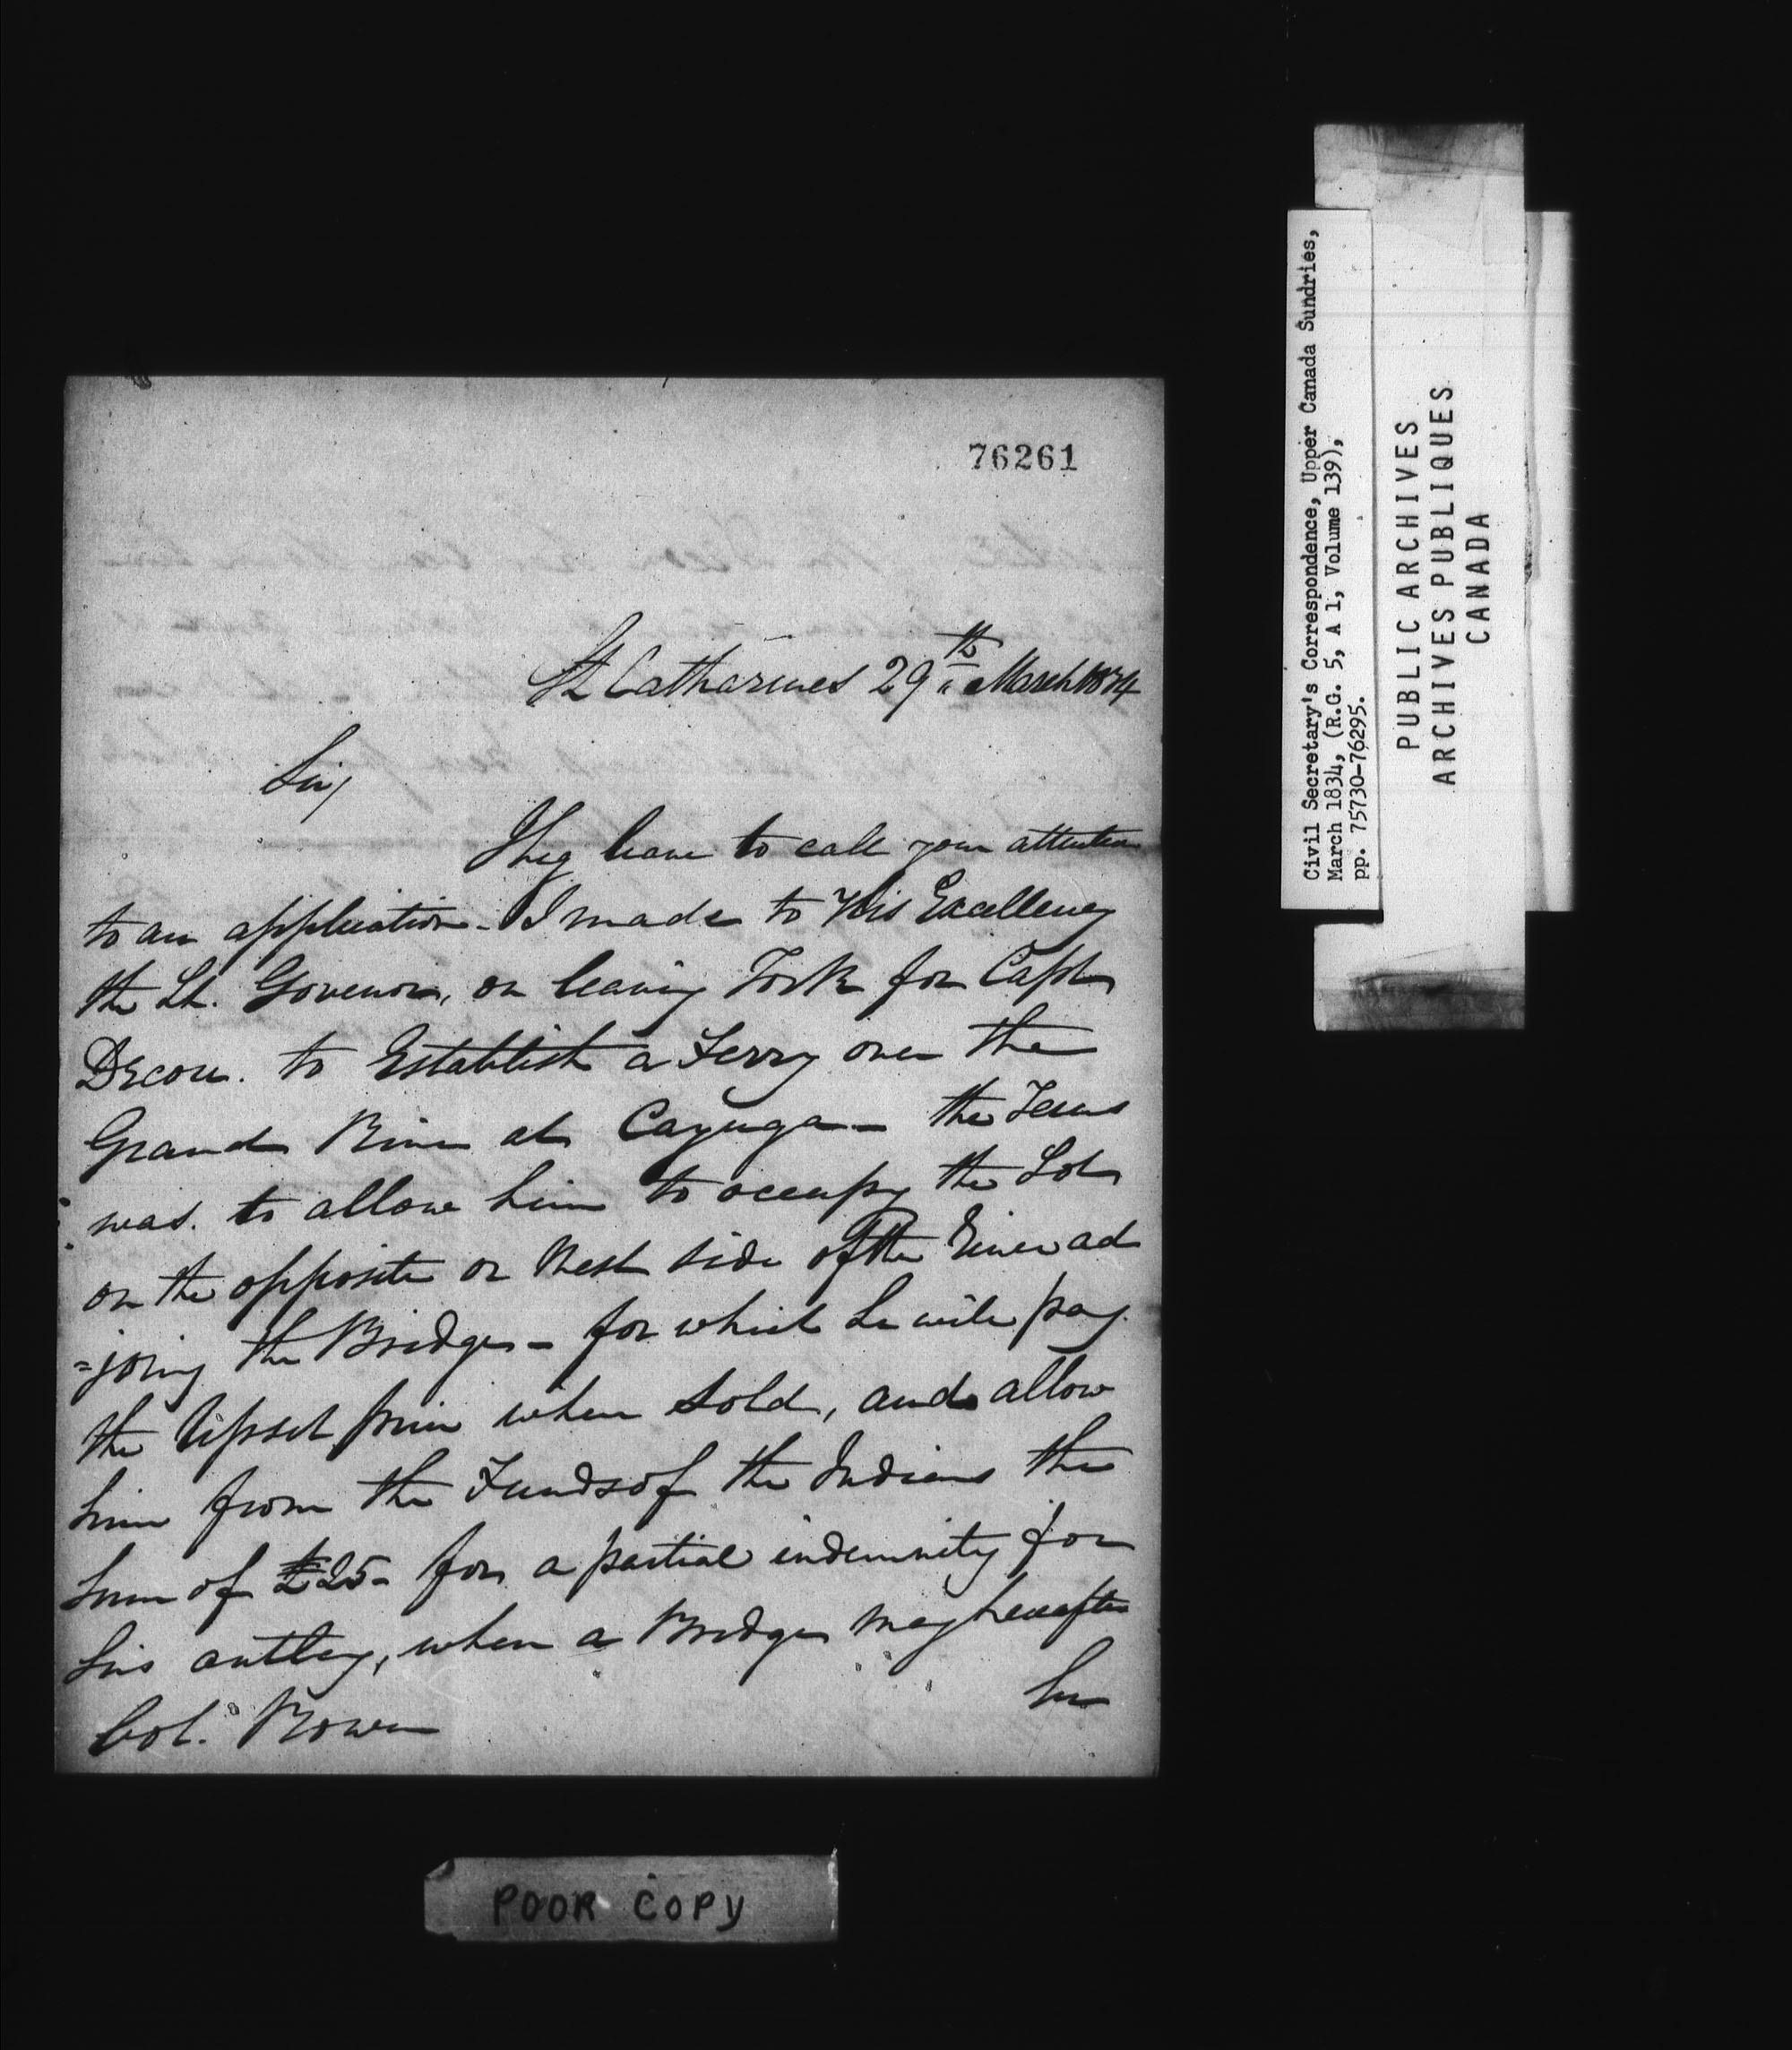 76261
St Catharines 29th March 1834
Sir,
I beg leave to call your attention
to an application - I made to His Excellency
the Lt. Govenor, on leaving York for Capt
Decou. to Establish a Ferry over the
Grand River at Cayuga - the Terms
was. to allow him to occupy the Lot
on the opposite or West side of the River ad
=joing the Bridge - for which he will pay.
the Upset price when sold, and allow
him from the Funds of the Indians the
sum of £25 - for a partial indemnity for
his outlay, when a Bridge may hereafter
be
Col. Rowan
POOR COPY
Civil Secretary's Correspondence, Upper Canada Sundries,
March 1834, (R.G. 5, A 1, Volume 139),
pp. 75730-76295.
PUBLIC ARCHIVES
ARCHIVES PUBLIQUES
CANADA